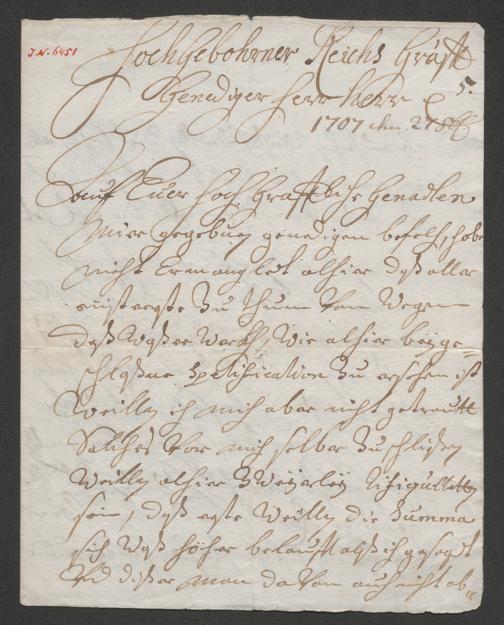 J.N. 6451
Hochgebohrner Reichs Graff
Genediger Herr Herr
5.
1707 den 27 8b
auf Euer Hoch Graffliche Genadten
Mier gegebnen genedigen befelch, habe
nicht Ermanglet alhier daß aller
zu thuen von wegen
deß Waßer Werckh, Wie alhier beyge-
schloßne Spetification zu ersehen ist
Weillen ich mich aber nicht getrautt
Solches vor mich selber zu schlißen
Weillen alhier Zweyerley
sein, daß erste Weillen die Summa
sich waß höher belaufft alß ich gesagt
Vnd dißer man davon auch nicht ab